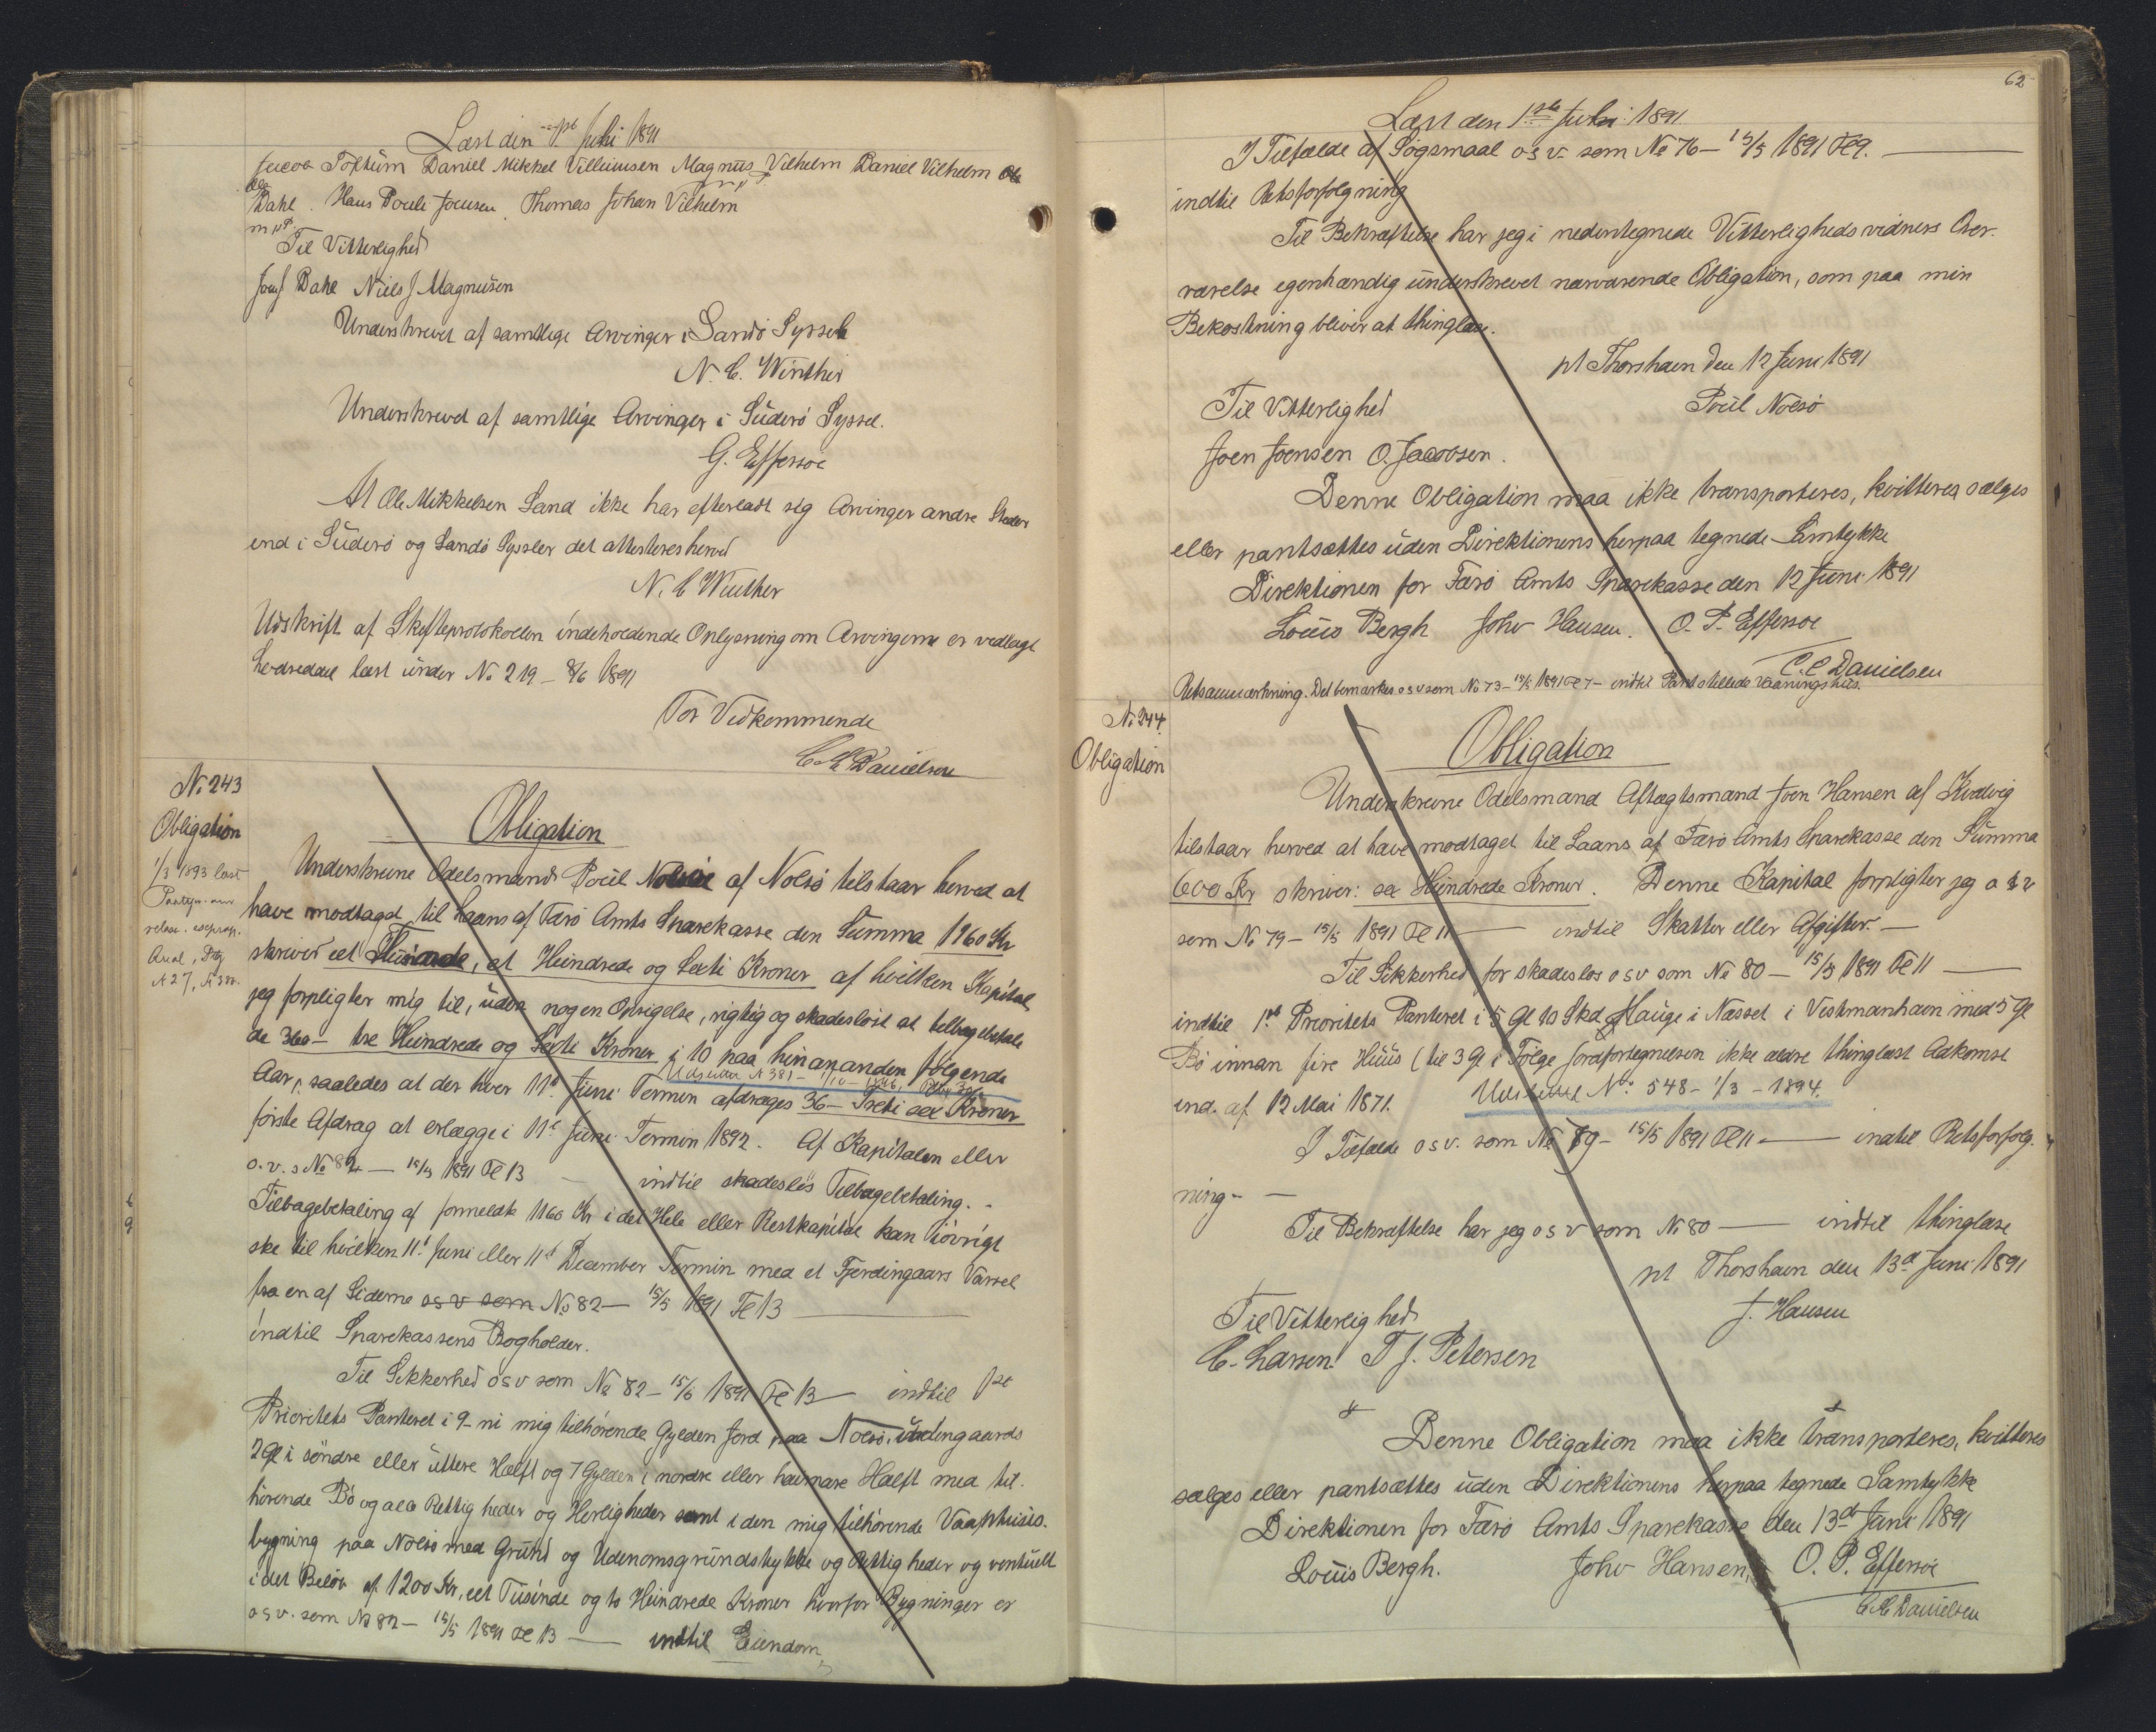 Læst den 1ste Juli 1891
Jacob Joltum Daniel Mikkel Villumsen Magnus Vilhelm Daniel Vilhelm Ole
Dahl. Hans Poule Joensen, Thomas Johan Vilhelm
m p P
Til Vitterlighed
Joens J Dahl Niels J Magnusen
Underskrevet af samtlige Arvinger i Sandø Syssel
N. C. Winther
Underskrevet af samtlige Arvinger i Suderø Syssel.
G. Effersøe
At Ole Mikkelsen Sand ikke har efterladt sig Arvinger andre Steder
end i Suderø og Sandø Sysler det attesteres herved
N. C Winther
Udskrift af Skifteprotokollen indeholdende Oplysning om Arvingerne er vedlagt
læst under No 219 - 8/6 1891
For Vedkommende
C. C. Danielsen
No 243
Obligation
1/3 1893 læst
A 27, N 322.
Obligation
Underskrevne Odelsmand Poul Nolsøe af Nolsø tilstaar herved at
have modtaget til Laans af Færø Amts Sparekasse den Summa 1160 Kr
skriver eet Tusinde, et Hundrede og Sexti Kroner af hvilken Kapital
jeg forpligter mig til, uden nogen Opsigelse, rigtig og skadesløst at tilbagebetale
de 360 - tre Hundrede og Sexti Kroner i 10 paa hinanden følgende
Udslettet N 381 - 1/10 - 1906,
Aar, saaledes at der hver 11te Juni Termin afdrages 36 - Treti sex Kroner
første Afdrag at erlægge i 11te Juni Termin 1892. Af Kapitalen eller
o. v. s No 82 - 15/5 1891 Fe 13 - indtil skadesløs Tilbagebetaling. -
Tilbagebetaling af formeldte 1160 Kr i det Hele eller Restkapital kan iøvrigt
ske til hvilken 11te Juni eller 11te December Termin med et Fjerdingaars Varsel
fra en af Siderne osv som No 82 - 15/5 1891 Fe 13
indtil Sparekassens Bogholder.
Til Sikkerhed osv som No 82 - 15/5 1891 Fe 13 - indtil 1ste
Prioritets Panteret i 9 - ni mig tilhørende Gylden Jord paa Nolsø,
2 Gl i søndre eller uttere Hælft og 7 Gylden i nordre eller heimare Hælft med til-
hørende Bø og alle Rettigheder og Herligheder samt i den mig tilhørende Vaaphuus-
bygning paa Nolsø med Grund og Udenomsgrundstykke og Rettigheder og ventuelt
i det Beløb af 1200 Kr, eet Tusinde og to Hundrede Kroner hvorfor Bygninger er
osv. som No 82 - 15/5 1891 Fe 13 - indtil Eiendom
62
Læst den 1ste Juli 1891
I Tilfælde af Søgsmaal osv som No 76 - 15/5 1891 Fe 9. -
indtil Retsforfølgning
Til Bekræftelse har jeg i nedentegnede Vitterlighedsvidners Over-
værelse egenhændig underskrevet nærværende Obligation, som paa min
Bekostning bliver at thinglæse.
pt Thorshavn den 12 Juni 1891
Til Vitterlighed
Poul Nolsø
Joen Joensen O. Jacobsen.
Denne Obligation maa ikke transporteres, kvitteres sælges
eller pantsættes uden Direktionens herpaa tegnede Samtykke
Direktionen for Færø Amts Sparekasse den 12 Juni 1891
Louis Bergh Johs Hansen. O. P. Effersøe
C. C Danielsen
Retsanmærkning. Det bemærkes osv som No 73 - 15/5 1891 Fe 7 - indtil Pantstillede Vaaningshus.
No 244
Obligation
Obligation
Underskrevne Odelsmand Aftægtsmand Joen Hansen af Kvalvig
tilstaar herved at have modtaget til Laans af Færø Amts Sparekasse den Summa
600 Kr skriver: sex Hundrede Kroner. Denne Kapital forpligter jeg o s v
som No 79 - 15/5 1891 Fe 11 - indtil Skatter eller Afgifter. -
Til Sikkerhed for skadesløs osv som No 80 - 15/5 1891 Fe 11 -
indtil 1ste Prioritets Panteret i 5 Gl 10 Skd Hauge i Næsset i Vestmanhavn med 5 Gl
Bø innan fire Huus (til 3 Gl i Følge Jordfortegnelsen ikke ældre thinglæst Adkomst
end af 12 Mai 1871. Udslettet No 548 - 1/3 - 1894.
I Tilfælde osv. som No 79 - 15/5 1891 Fe 11 - indtil Retsforfølg-
ning - -
Til Bekræftelse har jeg osv som No 80 - indtil thinglæse
pt Thorshavn den 13de Juni 1891
Til Vitterlighed
J. Hansen
C. Larsen. T J. Petersen
Denne Obligation maa ikke transporteres, kvitteres
sælges eller pantsættes uden Direktionens herpaa tegnede Samtykke
Direktionen for Færø Amts Sparekasse den 13de Juni 1891
Louis Bergh. Johs Hansen, O. P. Effersøe
C. C. Danielsen